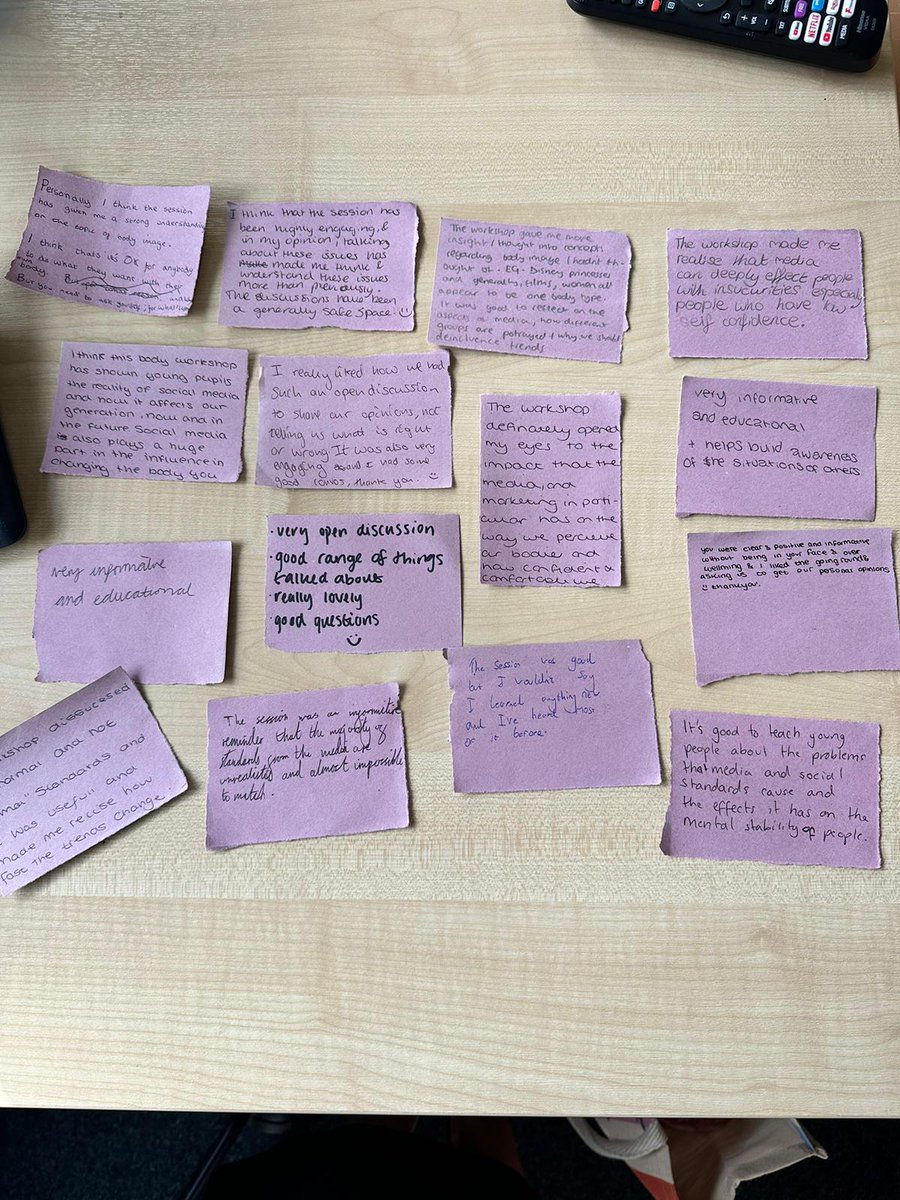 NETFLIX
MEDIA
Hisense
Personally I think the session
has given me a strong understanding
on the topic of body image.
I think thats its OK for anybody
to do what they want with their
body.
But you need to ask yourself, for what
I think that the session has
been highly engaging, &
in my opinion, talking
about these issues has
made me think &
understand these issues
more than previously.
The discussions have been
a generally safe space. :)
The workshop gave me more
insight / thought into concepts
regarding body image I hadnt th-
ought of. EG. Disney princesses
and generally, films, women all
appear to be one body type.
It was good to reflect on the
aspects of media, how different
groups are portrayed + why we should
deinfluence trends
The workshop made me
realise that media
can deeply effect people
with insucurities, especialy
people who have low
self confidence.
I think this body workshop
has shown young pupils
the reality of social media
and how it affects our
generation, now and in
the future. Social media
also plays a huge
part in the influence in
changing the body you
I really liked how we had
such an open discussion
to share our opinions, not
telling us what is right
or wrong. It was also very
engaging and I had some
good convos, thank you. :)
The workshop
definately opened
my eyes to the
impact that the
media, and
marketing in parti-
cular has on the
way we percieve
our bodies and
how confident &
comfortable we
very informative
and educational
+ helps build awareness
of the situations of others.
very informative
and educational
· very open discussion
· good range of things
talked about
· really lovely
· good questions
:)
you were clear & positive and informative
without being in your face & over
wellming & I liked the going round &
asking us to get our personal opinions
:) thankyou.
workshop discussed
normal and not
"Standards and
was usefull and
made me realise how
fast the trends change
The session was an informative
reminder that the majority of
standards from the media are
unrealistic and almost impossible
to match.
The session was good
but I wouldn't say
I learned anything new
and I've heard most
of it before.
It's good to teach young
people about the problems
that media and social
standards cause and
the effects it has on the
mental stability of people.